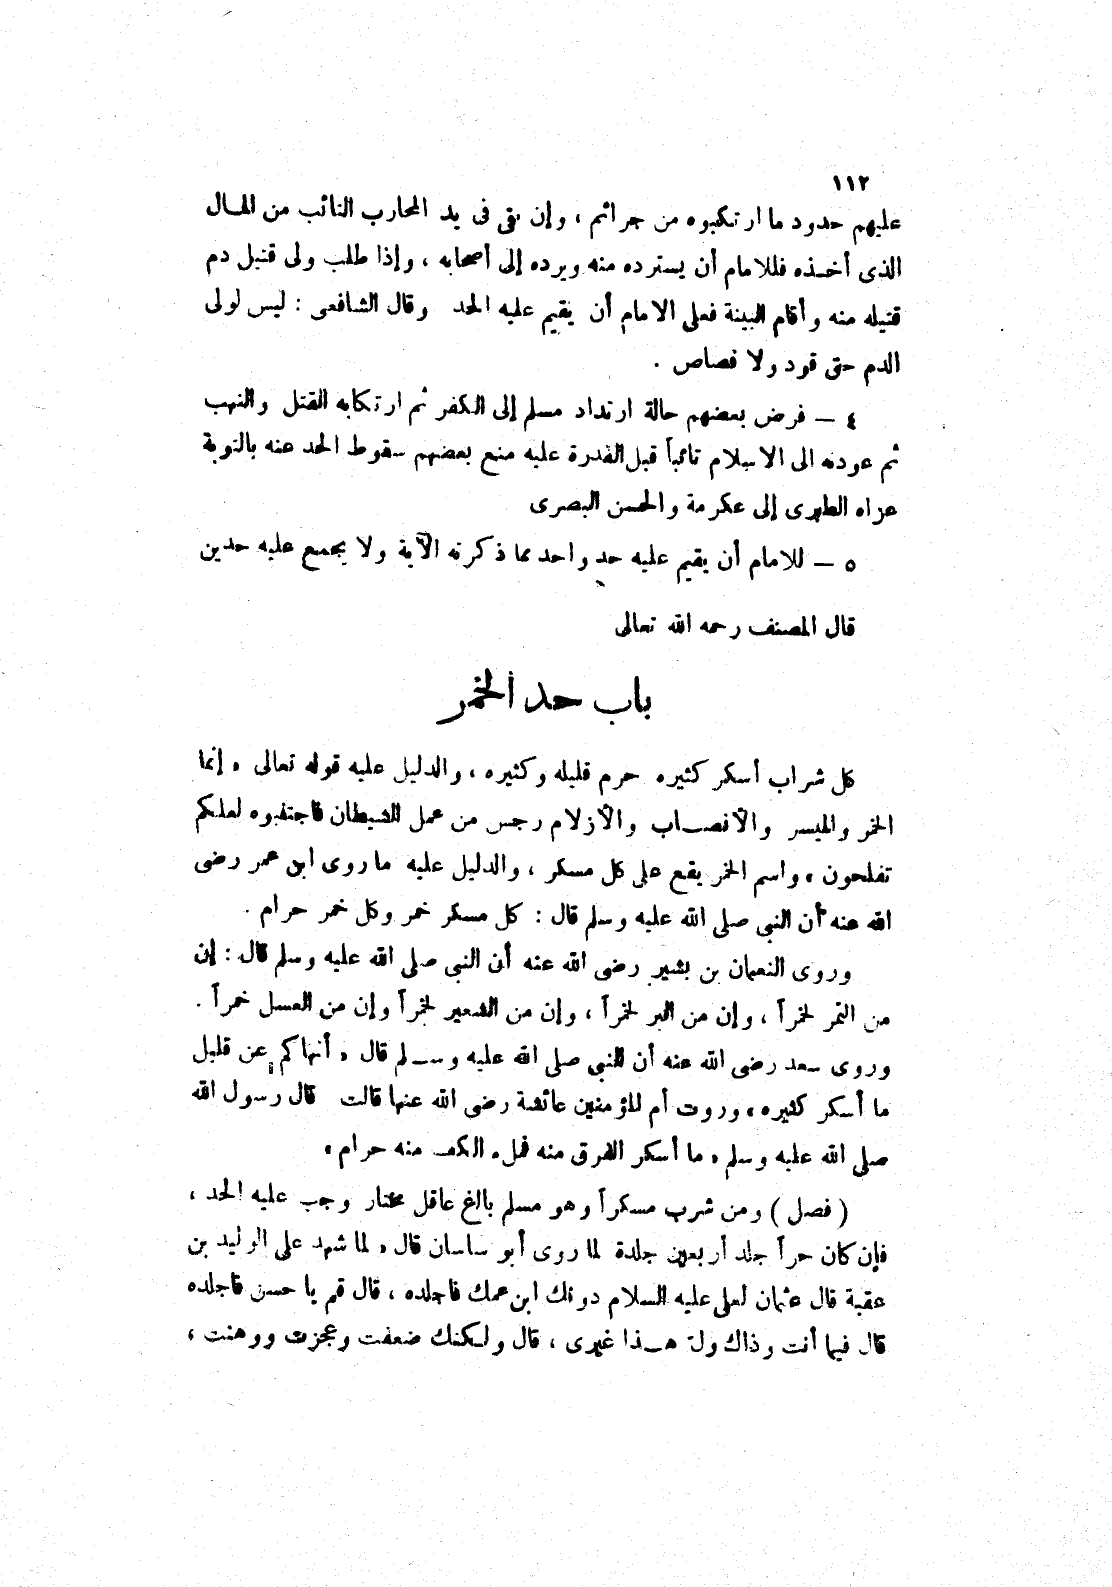 ١١٢
عليهم حدود ما ارتكبوه من جرائم ، وإن بقى فى يد المحارب التائب من المال
الذى أخذه فللامام أن يسترده منه ويرده إلى أصحابه ، وإذا طلب ولى قتيل دم
قتيله منه وأقام البينة فعلى الامام أن يقيم عليه الحد وقال الشافعى : ليس لولى
الدم حق قود ولا قصاص .
٤ ــ فرض بعضهم حالة ارتداد مسلم إلى الكفر ثم ارتكابه القتل والنهب
ثم عودته الى الاسلام تائباً قبل القدرة عليه منع بعضهم سقوط الحد عنه بالتوبة
عزاه الطبرى إلى عكرمة والحسن البصرى
٥ ــ للامام أن يقيم عليه حد واحد مما ذكرته الآية ولا يجمع عليه حدين
قال المصنف رحمه الله تعالى
باب حد الخمر
كل شراب أسكر كثيره حرم قليله وكثيره ، والدليل عليه قوله تعالى « إنما
الخمر والميسر والأنصاب والأزلام رجس من عمل الشيطان فاجتنبوه لعلكم
تفلحون » واسم الخمر يقع على كل مسكر ، والدليل عليه ما روى ابن عمر رضى
الله عنه أن النبى صلى الله عليه وسلم قال : كل مسكر خمر وكل خمر حرام .
وروى النعمان بن بشير رضى الله عنه أن النبى صلى الله عليه وسلم قال : إن
من التمر لخمراً ، وإن من البر لخمراً ، وإن من الشعير لخمراً وإن من العسل خمراً .
وروى سعد رضى الله عنه أن النبى صلى الله عليه وسلم قال « أنهاكم عن قليل
ما أسكر كثيره » وروت أم المؤمنين عائشة رضى الله عنها قالت قال رسول الله
صلى الله عليه وسلم « ما أسكر الفرق منه فملء الكف منه حرام »
( فصل ) ومن شرب مسكراً وهو مسلم بالغ عاقل مختار وجب عليه الحد ،
فإن كان حراً جلد أربعين جلدة لما روى أبو ساسان قال « لما شهد على الوليد بن
عقبة قال عثمان لعلى عليه السلام دونك ابن عمك فاجلده ، قال قم يا حسن فاجلده
قال فيما أنت وذاك ول هذا غيرى ، قال ولكنك ضعفت وعجزت ووهنت ،